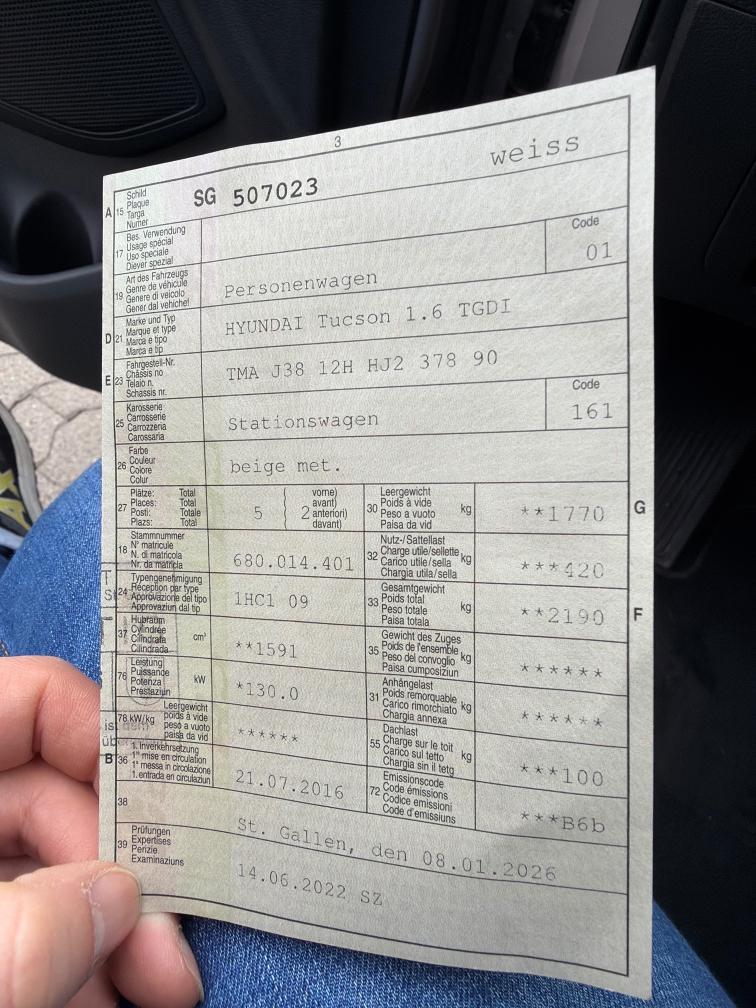 3
A 15 Schild
Plaque
Targa
Numer
SG 507023 weiss
17 Bes. Verwendung
Usage spécial
Uso speciale
Diever spezial
19 Art des Fahrzeugs
Genre de véhicule
Genere di veicolo
Gener dal vehichel
Personenwagen
Code
01
D 21 Marke und Typ
Marque et type
Marca e tipo
Marca e tip
HYUNDAI Tucson 1.6 TGDI
E 23 Fahrgestell-Nr.
Châssis no
Telaio n.
Schassis nr.
TMA J38 12H HJ2 378 90
25 Karosserie
Carrosserie
Carrozzeria
Carossaria
Stationswagen
Code
161
26 Farbe
Couleur
Colore
Colur
beige met.
27 Plätze: Total
Places: Total
Posti: Totale
Plazs: Total
5 2 vorne)
avant)
anteriori)
davant)
30 Leergewicht
Poids à vide
Peso a vuoto
Paisa da vid
kg
**1770
G
18 Stammnummer
N° matricule
N. di matricola
Nr. da matricla
680.014.401
32 Nutz-/Sattellast
Charge utile/sellette
Carico utile/sella
Chargia utila/sella
kg
***420
24 Typengenehmigung
Réception par type
Approvazione del tipo
Approvaziun dal tip
1HC1 09
33 Gesamtgewicht
Poids total
Peso totale
Paisa totala
kg
**2190
F
37 Hubraum
Cylindrée
Cilindrata
Cilindrada
cm³
**1591
35 Gewicht des Zuges
Poids de l'ensemble
Peso del convoglio
Paisa cumposiziun
kg
******
76 Leistung
Puissance
Potenza
Prestaziun
kW
*130.0
31 Anhängelast
Poids remorquable
Carico rimorchiato
Chargia annexa
kg
******
78 kW/kg Leergewicht
poids à vide
peso a vuoto
paisa da vid
******
55 Dachlast
Charge sur le toit
Carico sul tetto
Chargia sin il tetg
kg
***100
B 36 1. Inverkehrsetzung
1re mise en circulation
1a messa in circolazione
1. entrada en circulaziun
21.07.2016
72 Emissionscode
Code émissions
Codice emissioni
Code d'emissiuns
***B6b
38
St. Gallen, den 08.01.2026
39 Prüfungen
Expertises
Perizie
Examinaziuns
14.06.2022 SZ